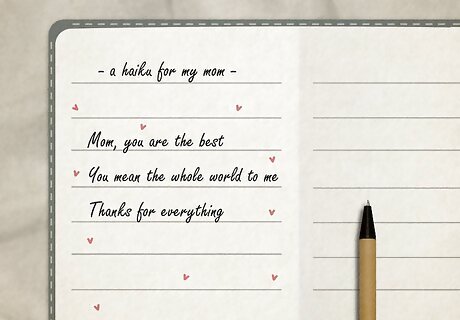 - a haiku for my mom -
Mom, you are the best
You mean the whole world to me
Thanks for everything